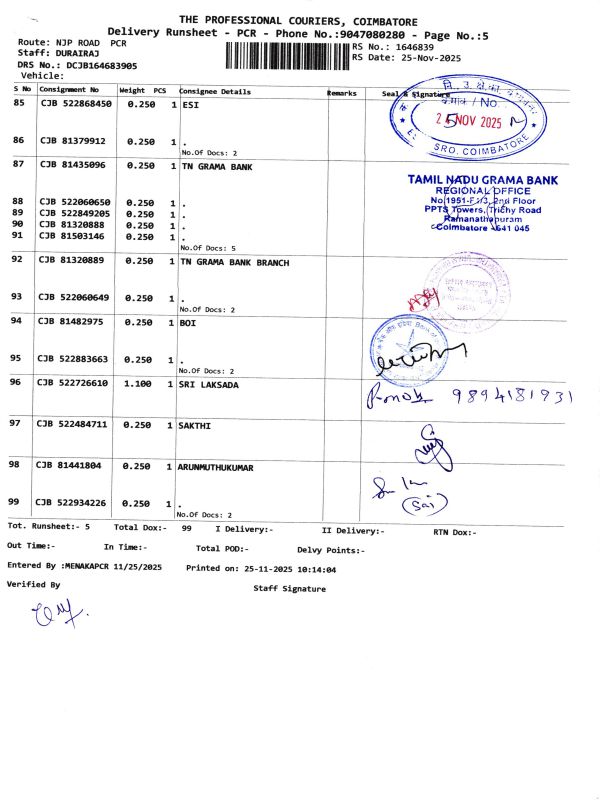 THE PROFESSIONAL COURIERS, COIMBATORE
Delivery Runsheet - PCR - Phone No.:9047080280 - Page No.:5
Route: NJP ROAD PCR
RS No.: 1646839
Staff: DURAIRAJ
RS Date: 25-Nov-2025
DRS No.: DCJB164683905
Vehicle:
S No Consignment No Weight PCS Consignee Details Remarks Seal & Signature
85 CJB 522868450 0.250 1 ESI
/ No.
25 NOV 2025
SRO. COIMBATORE
86 CJB 81379912 0.250 1 .
No.Of Docs: 2
87 CJB 81435096 0.250 1 TN GRAMA BANK
TAMIL NADU GRAMA BANK
REGIONAL OFFICE
2nd Floor
PPTS Towers, Trichy Road
Ramanathapuram
Coimbatore - 641 045
88 CJB 522060650 0.250 1 .
89 CJB 522849205 0.250 1 .
90 CJB 81320888 0.250 1 .
91 CJB 81503146 0.250 1 .
No.Of Docs: 5
92 CJB 81320889 0.250 1 TN GRAMA BANK BRANCH
93 CJB 522060649 0.250 1 .
No.Of Docs: 2
94 CJB 81482975 0.250 1 BOI
95 CJB 522883663 0.250 1 .
No.Of Docs: 2
96 CJB 522726610 1.100 1 SRI LAKSADA
9894181931
97 CJB 522484711 0.250 1 SAKTHI
98 CJB 81441804 0.250 1 ARUNMUTHUKUMAR
(Sai)
99 CJB 522934226 0.250 1 .
No.Of Docs: 2
Tot. Runsheet:- 5 Total Dox:- 99 I Delivery:- II Delivery:- RTN Dox:-
Out Time:- In Time:- Total POD:- Delvy Points:-
Entered By :MENAKAPCR 11/25/2025 Printed on: 25-11-2025 10:14:04
Verified By
Staff Signature